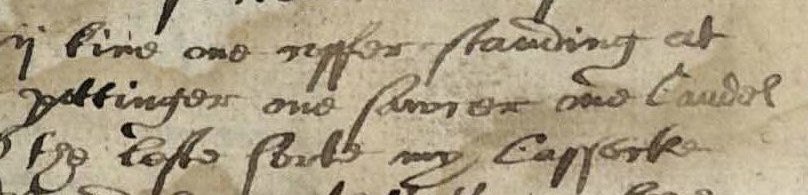 ij kine one coffer standing at
pottinger one sawcer one Candel
the beste sorte my Cassocke